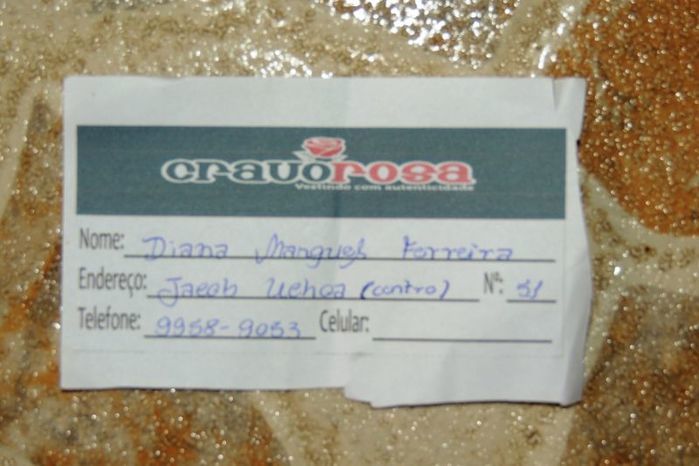 cravorosa
Vestindo com autenticidade
Nome: Diana Mangueh Ferreira
Endereço: Jacob Uchoa (centro) Nº: 51
Telefone: 9958-9053 Celular: